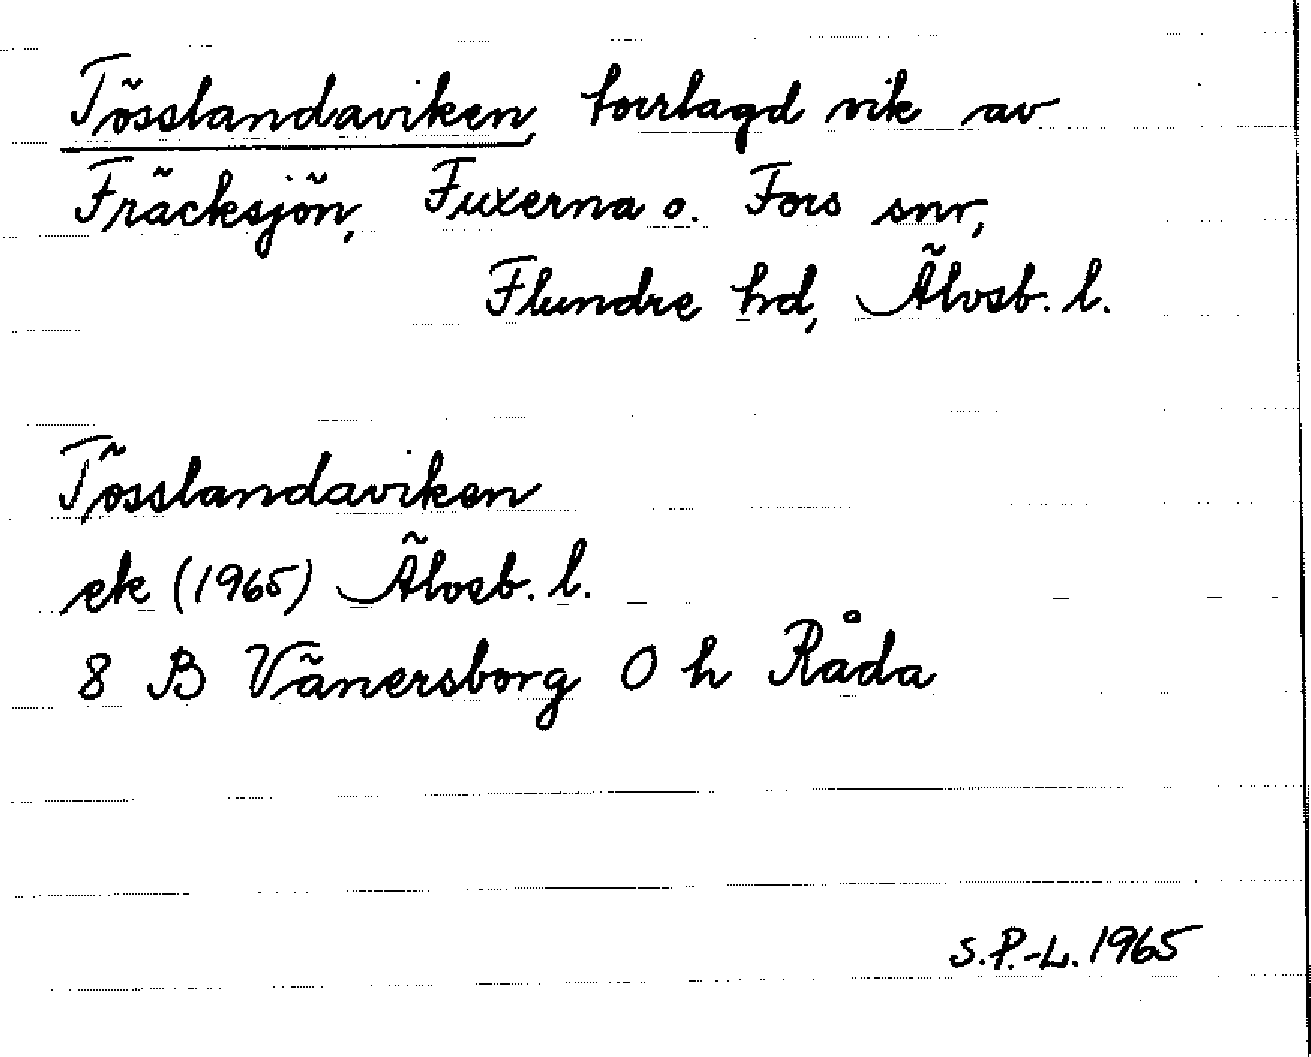 Tösslandaviken, torrlagd vik av
Fräcksjön, Fuxerna o. Fors snr,
Flundre hd, Älvsb. l.
Tösslandaviken
ek (1965) Älvsb. l.
8 B Vänersborg 0 h Råda
S.P.-L. 1965